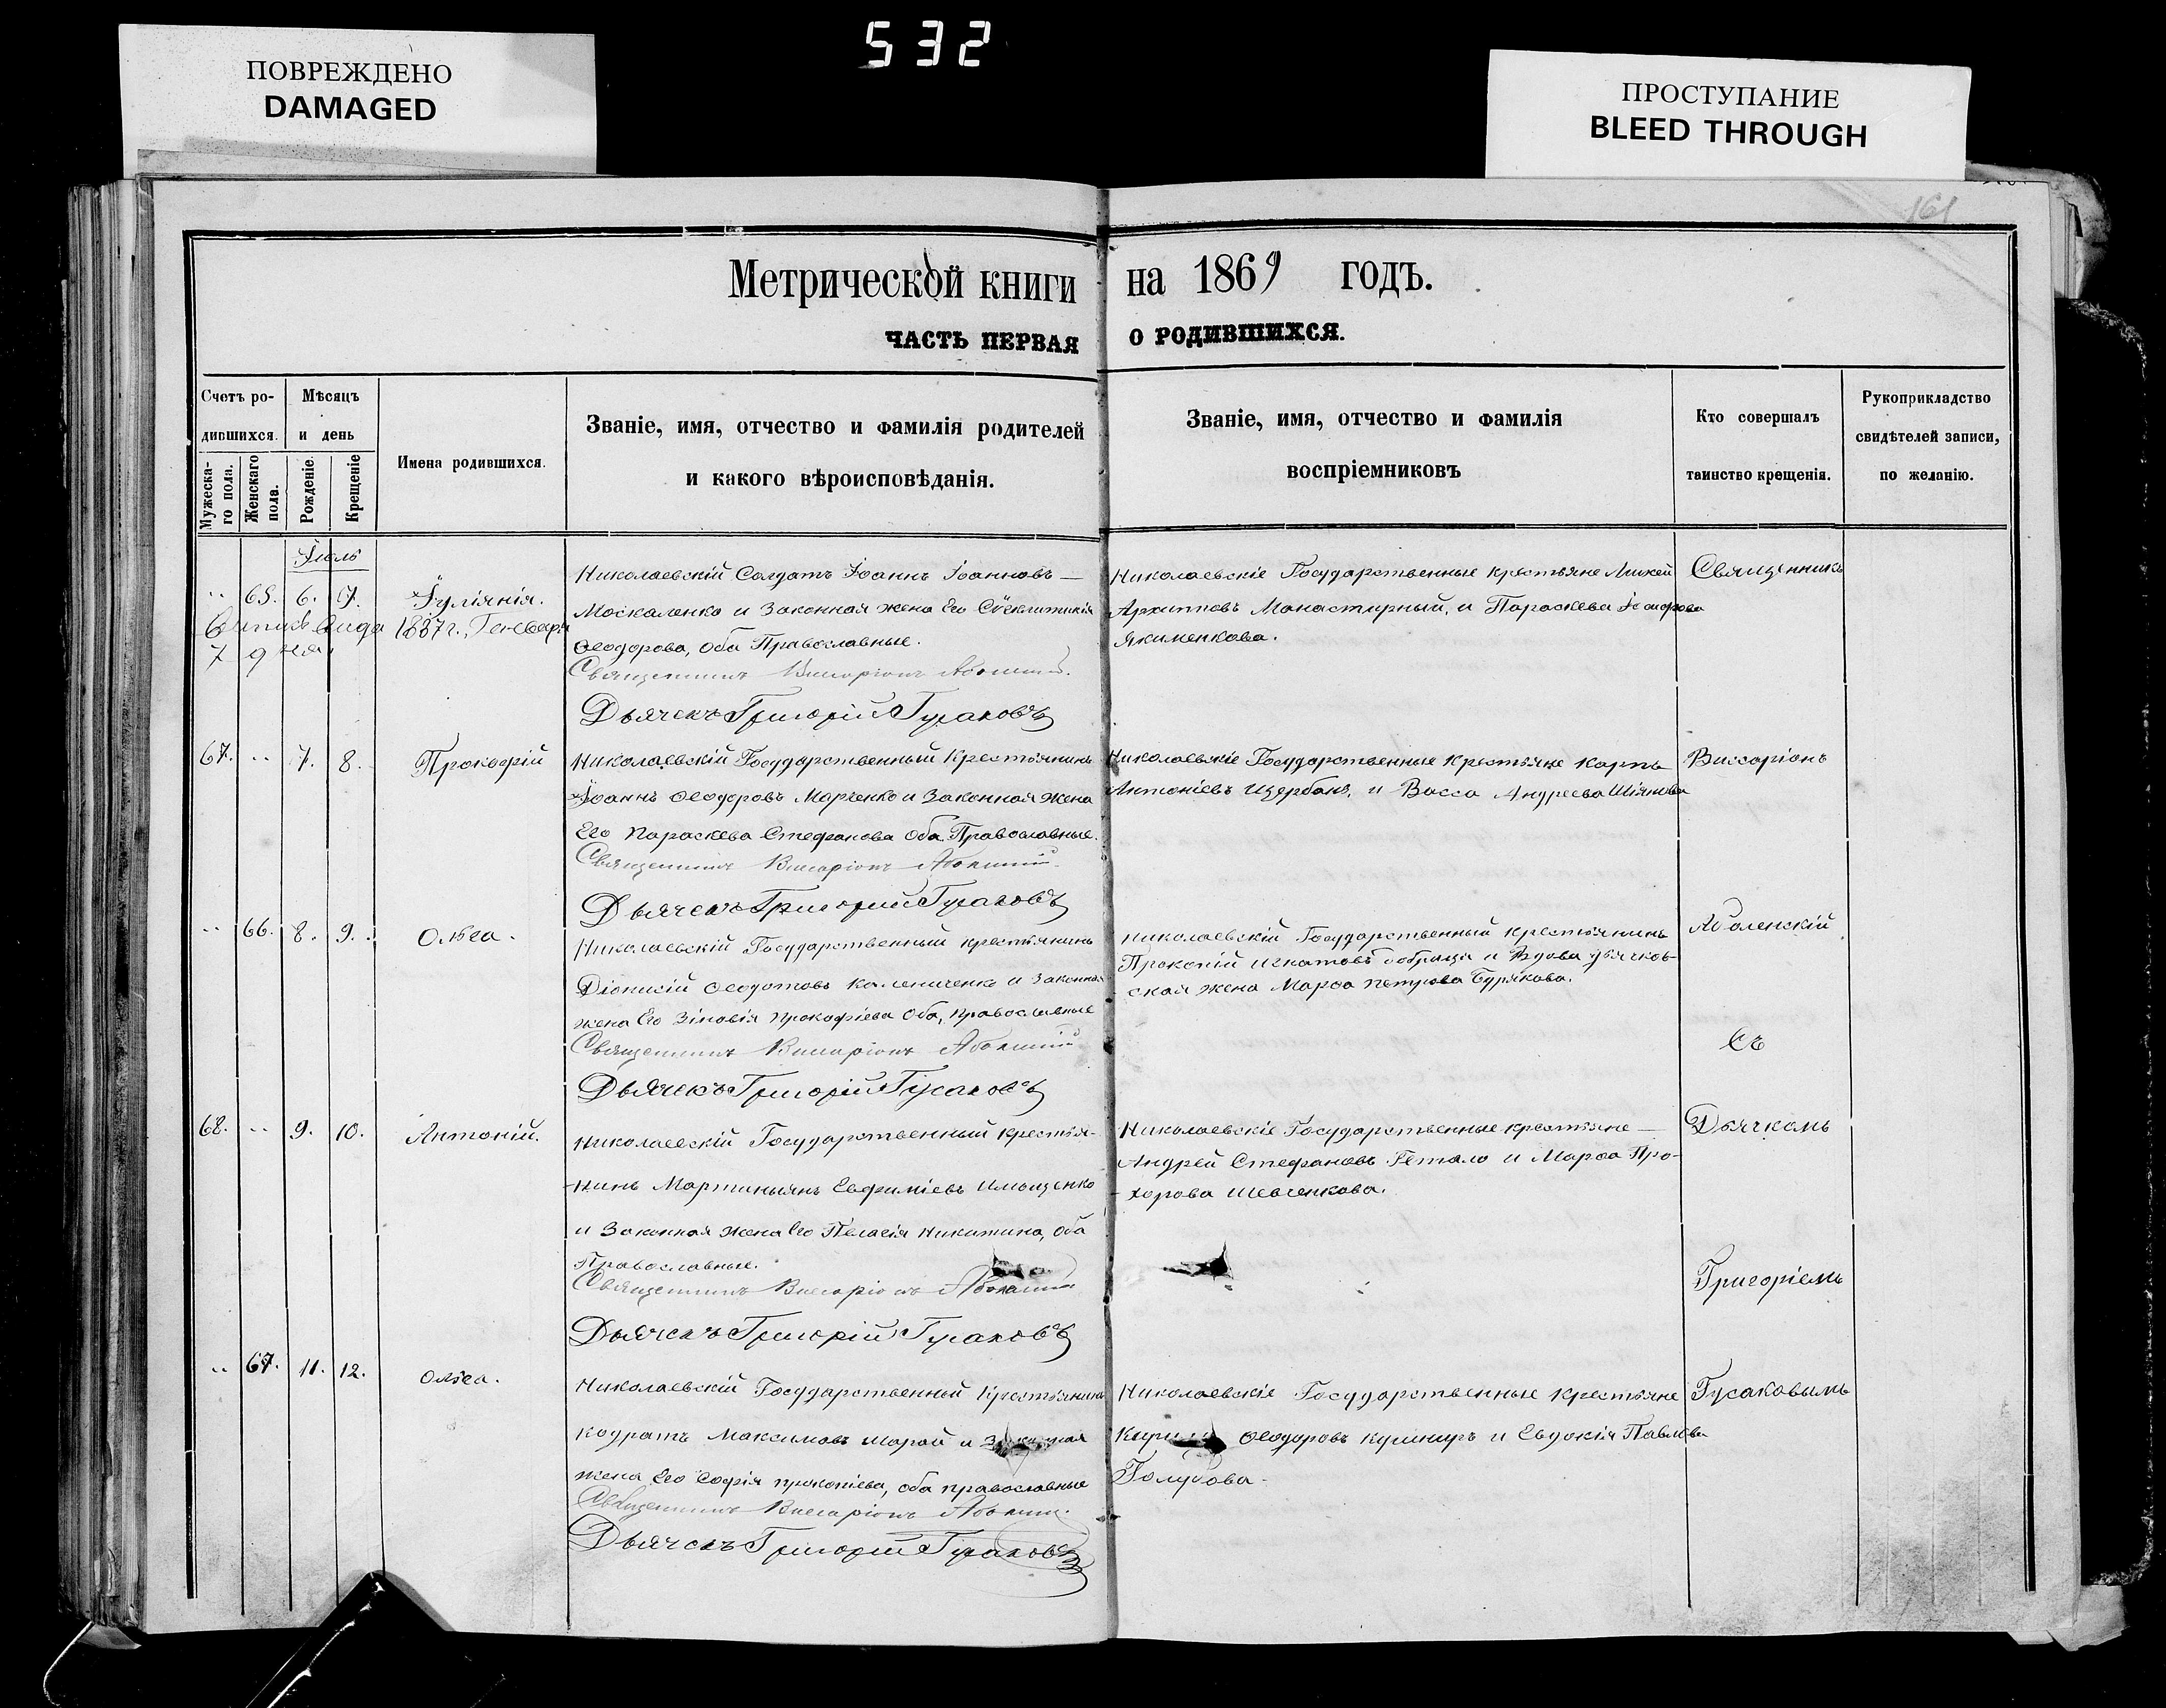 532
ПОВРЕЖДЕНО
DAMAGED
ПРОСТУПАНИЕ
BLEED THROUGH
161
Метрической книги на 1869 годъ.
ЧАСТЬ ПЕРВАЯ О РОДИВШИХСЯ.
Счетъ ро-
дившихся.
Мужеска-
го пола.
Женскаго
пола.
Мѣсяцъ
и день
Рожденіе.
Крещеніе
Имена родившихся.
Званіе, имя, отчество и фамилія родителей
и какого вѣроисповѣданія.
Званіе, имя, отчество и фамилія
воспріемниковъ
Кто совершалъ
таинство крещенія.
Рукоприкладство
свидѣтелей записи,
по желанію.
Іюль
65. 6. 7. Іуліянія.
1887 г., Генваря
7 дня
Николаевскій Солдатъ Іоаннъ Іоанновъ
Москаленко и Законная жена Его
Ѳеодорова, Оба Православные.
Священникъ Виссаріонъ Аболенскій
Дьячекъ Григорій Гусаковъ
Николаевскіе Государственные крестьяне
Архиповъ Монастирный, и Параскева
Якименкова.
Священникъ
67. 7. 8. Прокофій
Николаевскій Государственный Крестьянинъ
Іоаннъ Ѳеодоровъ Марченко и Законная Жена
Его Параскева Стефанова Оба Православные.
Священникъ Виссаріонъ Аболенскій
Дьячекъ Григорій Гусаковъ
Николаевскіе Государственные Крестьяне Карпъ
Антоніевъ Щербакъ, и Васса Андреева
Виссаріонъ
66. 8. 9. Ольга.
Николаевскій Государственный крестьянинъ
Діонисій Ѳеодотовъ и Законная
жена Его Зіновія Прокофіева Оба, православные
Священникъ Виссаріонъ Аболенскій
Дьячекъ Григорій Гусаковъ
Николаевскій Государственный Крестьянинъ
Прокопій Игнатовъ и Вдова Дьячков-
ская жена Марѳа Петрова Бурякова.
Аболенскій
Съ
68. 9. 10. Антоній.
Николаевскій Государственный Крестья-
нинъ Мартиньянъ Евфиміевъ
и Законная Жена Его Пелагія Никитина, Оба
Православные.
Священникъ Виссаріонъ Аболенскій
Дьячекъ Григорій Гусаковъ
Николаевскіе Государственные крестьяне
Андрей Стефановъ и Марѳа Про-
хорова Шевченкова.
Дьячкомъ
Григоріемъ
67. 11. 12. Ольга.
Николаевскій Государственный Крестьянинъ
Кодратъ Максимовъ и
жена Его Софія Прокопіева, оба православные
Священникъ Виссаріонъ Аболенскій
Дьячекъ Григорій Гусаковъ
Николаевскіе Государственные крестьяне
Ѳеодоровъ Кушниръ и Евдокія Павлова
Голубова.
Гусаковымъ